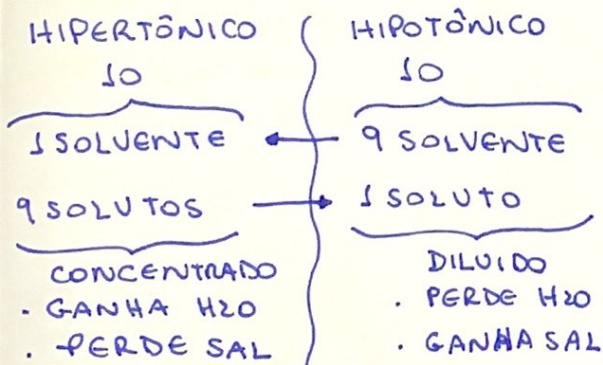 HIPERTÔNICO
10
1 SOLVENTE
9 SOLUTOS
CONCENTRADO
. GANHA H2O
. PERDE SAL
HIPOTÔNICO
10
9 SOLVENTE
1 SOLUTO
DILUIDO
. PERDE H2O
. GANHA SAL